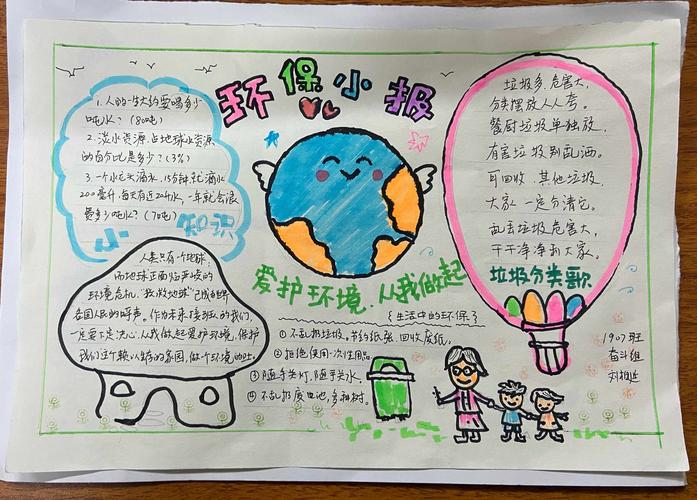 环保小报
1. 人的一生大约要喝多少
吨水？(80吨)
2. 淡水资源占地球水资源
的百分比是多少？(3%)
3. 一个水龙头滴水，15分钟就滴水
200毫升，每天有近20升水，一年就会浪
费多少吨水？(7吨)
小知识
人类只有一个地球，
而地球正面临严峻的
环境危机。"救救地球"已成世界
各国人民的呼声。作为未来接班人的我们，
一定要下决心，从我做起爱护环境，保护
我们这个赖以生存的家园，做个环境的
爱护环境，从我做起
{生活中的环保}
①不乱扔垃圾，节约纸张，回收废纸。
②拒绝使用一次性用品
③随手关灯，随手关水。
④不乱扔废电池，多种树。
垃圾多，危害大，
分类摆放人人夸。
餐厨垃圾单独放，
有害垃圾别乱洒。
可回收，其他垃圾，
大家一定分清它。
乱丢垃圾危害大，
干干净净利大家。
垃圾分类歌
1907班
奋斗组